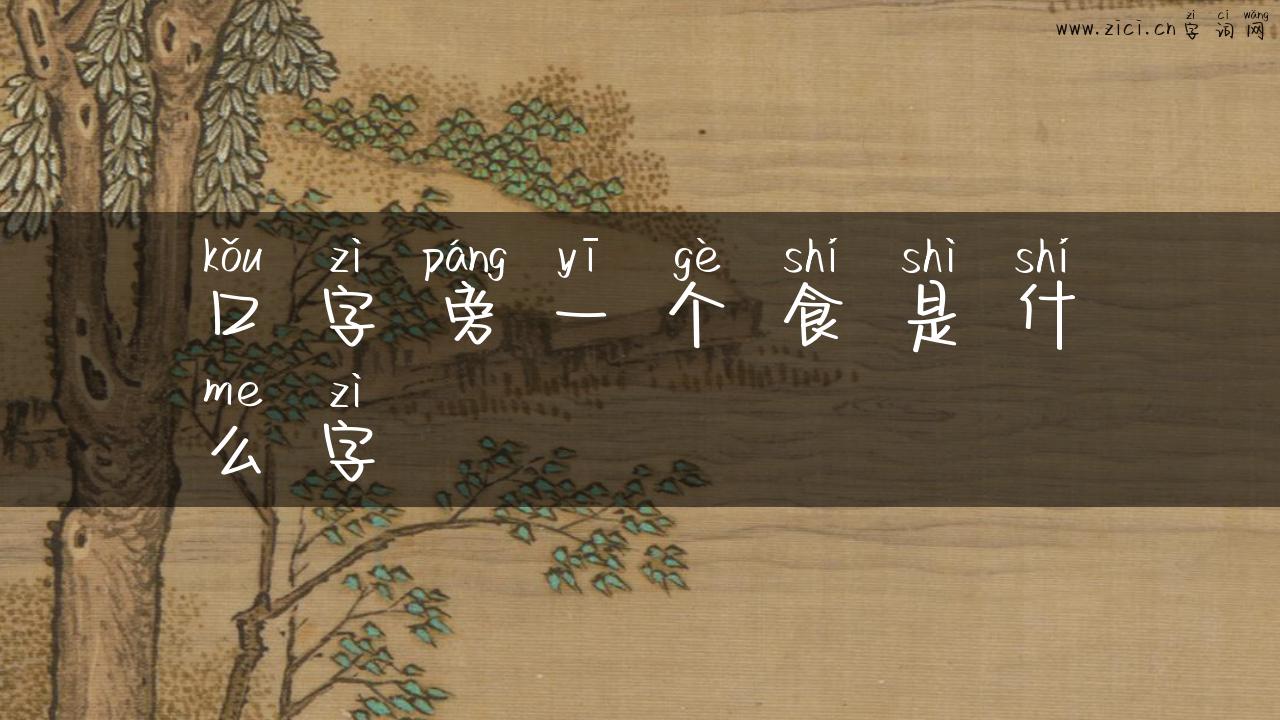 zì cí wǎng
www.zici.cn 字词网
kǒu zì páng yī gè shí shì shí
口字旁一个食是什
me zì
么字